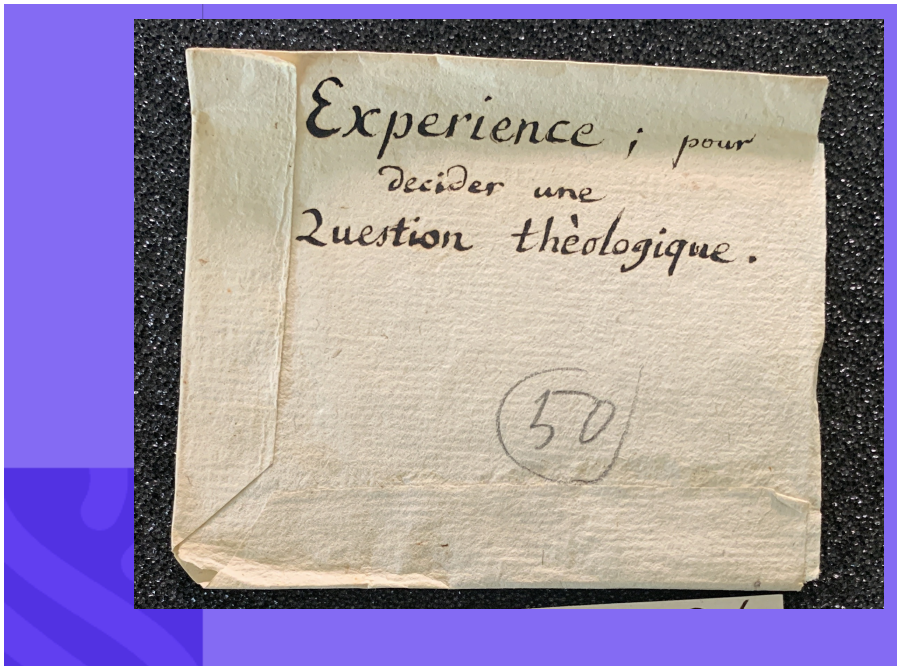 Experience ; pour
decider une
Question thèologique.
50